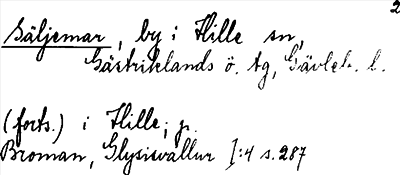 2
Säljemar, by i Hille sn,
Gästriklands ö. tg, Gävleb. l.
(forts.) i Hille; p.
Broman, Glysisvallur I:4 s. 287